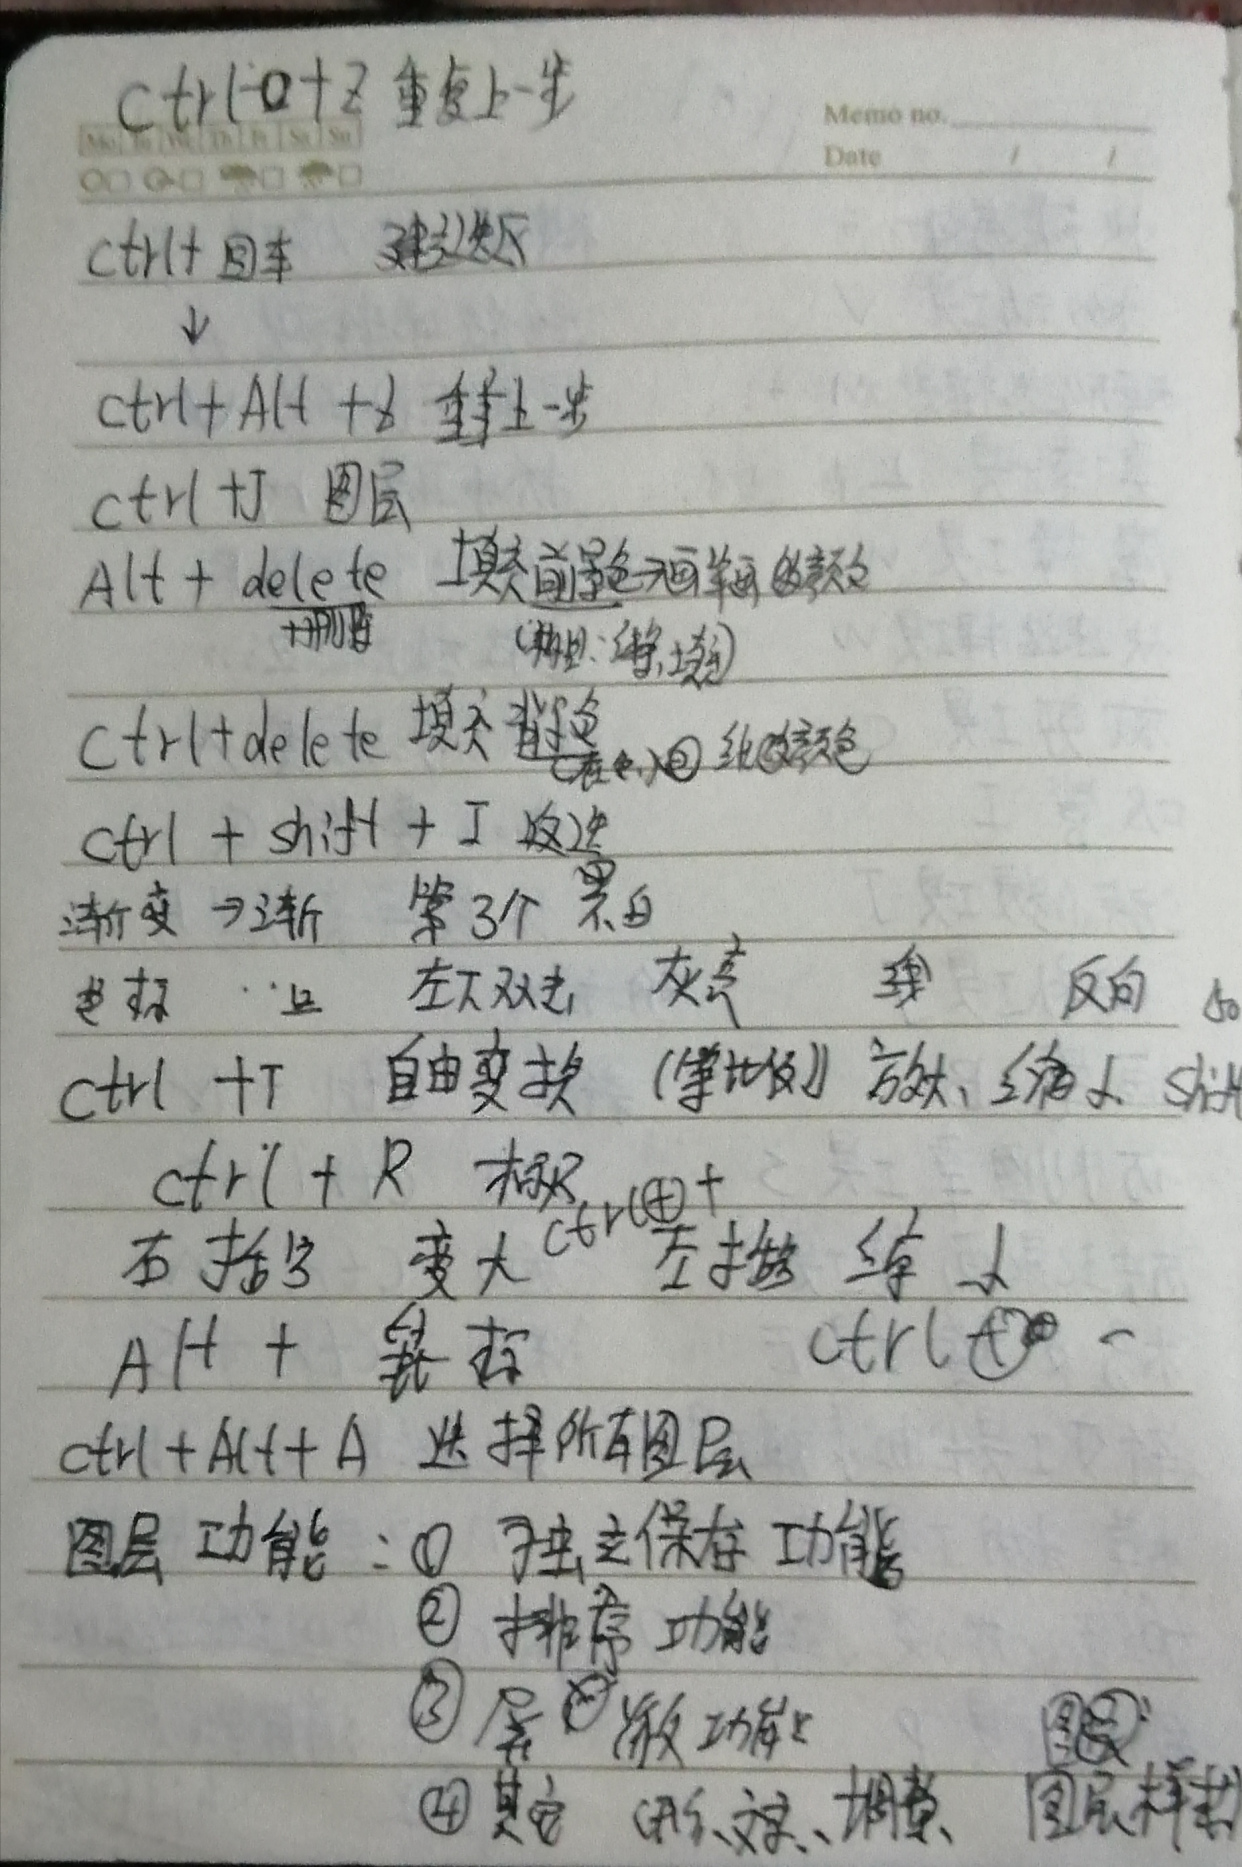 Ctrl + Z 重复上一步
Memo no.
Mo Tu We Th Fr Sa Su
Date / /
Ctrl+回车 建立选区
↓
Ctrl+Alt+Z 重复上一步
Ctrl+J 图层
Alt + delete 填充前景色→画笔的颜色
删除
Ctrl+delete 填充背景色
纸的颜色
Ctrl + shift + I 反选
渐变 → 渐 第3个 黑白
左下双击 灰亮 反向 50
Ctrl +T 自由变换 (等比例) 放大、缩小 shift
Ctrl + R 标尺
Ctrl ⊕ +
右括号 变大 左括号 缩小
Alt + 鼠标 Ctrl + -
Ctrl+Alt+A 选择所有图层
图层功能:① 独立保存功能
② 排序功能
③ 功能
④ 其它 文字、调整、 图层样式